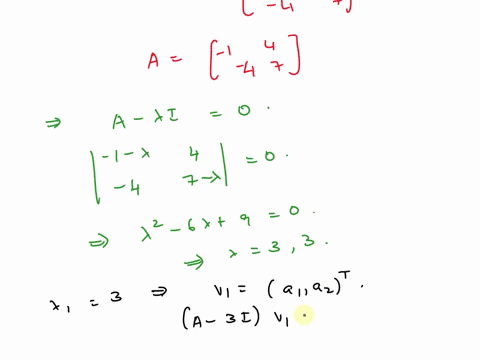 [-4 7]
A = [-1 4
-4 7]
⇒ A - λI = 0.
|-1-λ 4
-4 7-λ| = 0.
⇒ λ² - 6λ + 9 = 0.
⇒ λ = 3, 3.
λ₁ = 3 ⇒ v₁ = (a₁, a₂)ᵀ.
(A - 3I) v₁